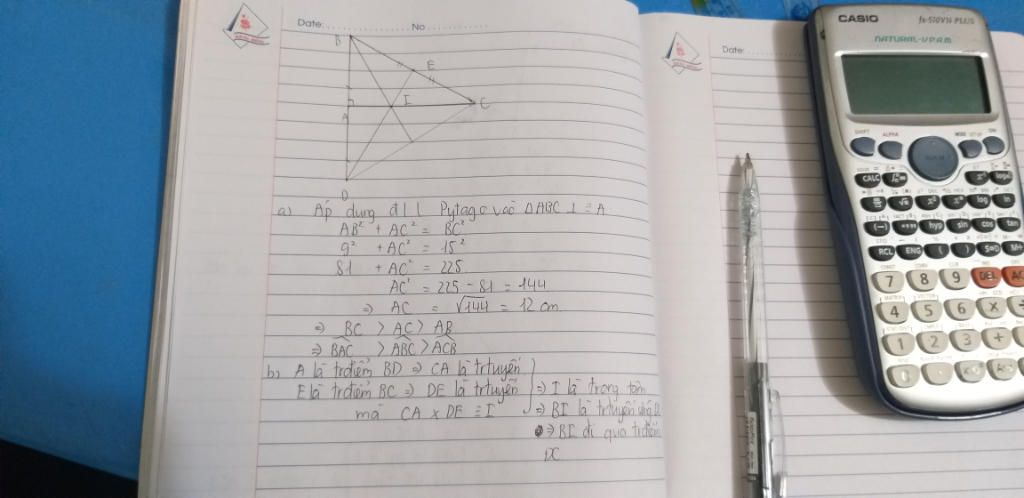 Date: No
B
E
I
C
A
D
a) Áp dụng đ l l Pytago vào ΔABC ⊥ ≡ A
AB² + AC² = BC²
9² + AC² = 15²
81 + AC² = 225
AC² = 225 - 81 = 144
⇒ AC = √144 = 12 cm
⇒ BC > AC > AB
⇒ BAC > ABC > ACB
b) A là trđiểm BD ⇒ CA là trtuyến
E là trđiểm BC ⇒ DE là trtuyến
mà CA x DE ≡ I
⇒ I là trọng tâm
⇒ BI là trtuyến
⇒ BI đi qua trđiểm
DC
Date:
CASIO fx-570VN PLUS
NATURAL-V.P.A.M.
SHIFT ALPHA MODE SETUP ON
CALC
log
ln
(-) hyp sin cos tan
RCL ENG ( ) S⇔D M+
7 8 9 DEL AC
4 5 6 ×
1 2 3 +
0